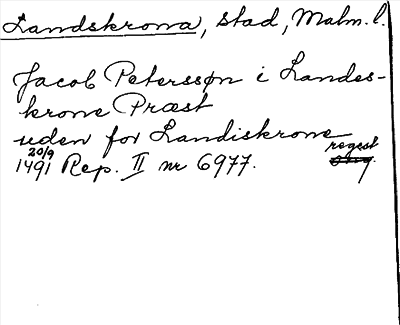 Landskrona, stad, Malm. l.
Jacob Peterssøn i Landes-
krone Præst
uden for Landiskrone
20/9 regest
1491 Rep. II nr 6977.